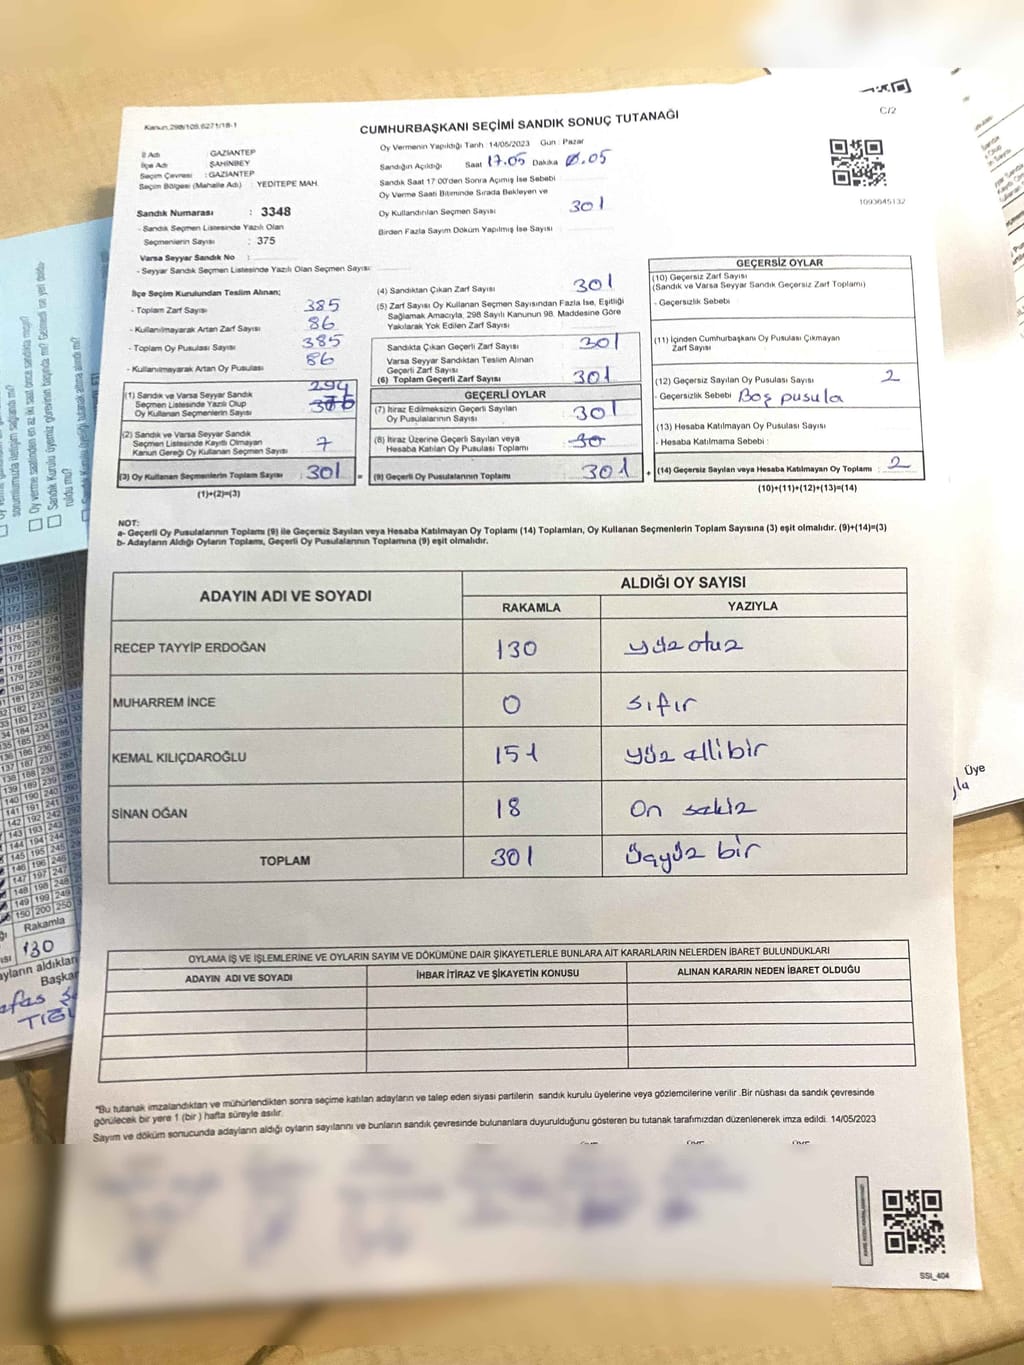 Kanun:298/105,6271/18-1
CUMHURBAŞKANI SEÇİMİ SANDIK SONUÇ TUTANAĞI
C/2
İl Adı : GAZİANTEP
İlçe Adı : ŞAHİNBEY
Seçim Çevresi : GAZİANTEP
Seçim Bölgesi (Mahalle Adı) : YEDİTEPE MAH.
Oy Vermenin Yapıldığı Tarih :14/05/2023 Gün : Pazar
Sandığın Açıldığı Saat 17.05 Dakika 0.05
Sandık Saat 17:00'den Sonra Açılmış İse Sebebi
Oy Verme Saati Bitiminde Sırada Bekleyen ve
Oy Kullandırılan Seçmen Sayısı 301
Birden Fazla Sayım Döküm Yapılmış İse Sayısı
1093645132
Sandık Numarası : 3348
- Sandık Seçmen Listesinde Yazılı Olan
Seçmenlerin Sayısı : 375
Varsa Seyyar Sandık No :
- Seyyar Sandık Seçmen Listesinde Yazılı Olan Seçmen Sayısı:
İlçe Seçim Kurulundan Teslim Alınan;
- Toplam Zarf Sayısı : 385
- Kullanılmayarak Artan Zarf Sayısı : 86
- Toplam Oy Pusulası Sayısı : 385
- Kullanılmayarak Artan Oy Pusulası : 86
294
(1) Sandık ve Varsa Seyyar Sandık
Seçmen Listesinde Yazılı Olup
Oy Kullanan Seçmenlerin Sayısı
(2) Sandık ve Varsa Seyyar Sandık
Seçmen Listesinde Kayıtlı Olmayan
Kanun Gereği Oy Kullanan Seçmen Sayısı 7
(3) Oy Kullanan Seçmenlerin Toplam Sayısı : 301 =
(1)+(2)=(3)
(4) Sandıktan Çıkan Zarf Sayısı 301
(5) Zarf Sayısı Oy Kullanan Seçmen Sayısından Fazla İse, Eşitliği
Sağlamak Amacıyla, 298 Sayılı Kanunun 98. Maddesine Göre
Yakılarak Yok Edilen Zarf Sayısı
Sandıkta Çıkan Geçerli Zarf Sayısı : 301
Varsa Seyyar Sandıktan Teslim Alınan
Geçerli Zarf Sayısı
(6) Toplam Geçerli Zarf Sayısı : 301
GEÇERLİ OYLAR
(7) İtiraz Edilmeksizin Geçerli Sayılan
Oy Pusulalarının Sayısı : 301
(8) İtiraz Üzerine Geçerli Sayılan veya
Hesaba Katılan Oy Pusulası Sayısı : 30
(9) Geçerli Oy Pusulalarının Toplamı : 301 +
GEÇERSİZ OYLAR
(10) Geçersiz Zarf Sayısı
(Sandık ve Varsa Seyyar Sandık Geçersiz Zarf Toplamı)
- Geçersizlik Sebebi
(11) İçinden Cumhurbaşkanı Oy Pusulası Çıkmayan
Zarf Sayısı
(12) Geçersiz Sayılan Oy Pusulası Sayısı 2
- Geçersizlik Sebebi Boş pusula
(13) Hesaba Katılmayan Oy Pusulası Sayısı
- Hesaba Katılmama Sebebi :
(14) Geçersiz Sayılan veya Hesaba Katılmayan Oy Toplamı : 2
(10)+(11)+(12)+(13)=(14)
NOT:
a- Geçerli Oy Pusulalarının Toplamı (9) ile Geçersiz Sayılan veya Hesaba Katılmayan Oy Toplamı (14) Toplamları, Oy Kullanan Seçmenlerin Toplam Sayısına (3) eşit olmalıdır. (9)+(14)=(3)
b- Adayların Aldığı Oyların Toplamı, Geçerli Oy Pusulalarının Toplamına (9) eşit olmalıdır.
ADAYIN ADI VE SOYADI
ALDIĞI OY SAYISI
RAKAMLA YAZIYLA
RECEP TAYYİP ERDOĞAN 130 yüz otuz
MUHARREM İNCE 0 sıfır
KEMAL KILIÇDAROĞLU 151 yüz elli bir
SİNAN OĞAN 18 On sekiz
TOPLAM 301 üçyüz bir
OYLAMA İŞ VE İŞLEMLERİNE VE OYLARIN SAYIM VE DÖKÜMÜNE DAİR ŞİKAYETLERLE BUNLARA AİT KARARLARIN NELERDEN İBARET BULUNDUKLARI
ADAYIN ADI VE SOYADI İHBAR İTİRAZ VE ŞİKAYETİN KONUSU ALINAN KARARIN NEDEN İBARET OLDUĞU
"Bu tutanak imzalandıktan ve mühürlendikten sonra seçime katılan adayların ve talep eden siyasi partilerin sandık kurulu üyelerine veya gözlemcilerine verilir .Bir nüshası da sandık çevresinde
görülecek bir yere 1 (bir ) hafta süreyle asılır.
Sayım ve döküm sonucunda adayların aldığı oyların sayılarını ve bunların sandık çevresinde bulunanlara duyurulduğunu gösteren bu tutanak tarafımızdan düzenlenerek imza edildi. 14/05/2023
SSI_404
Üye
Rakamla
130
Başkan